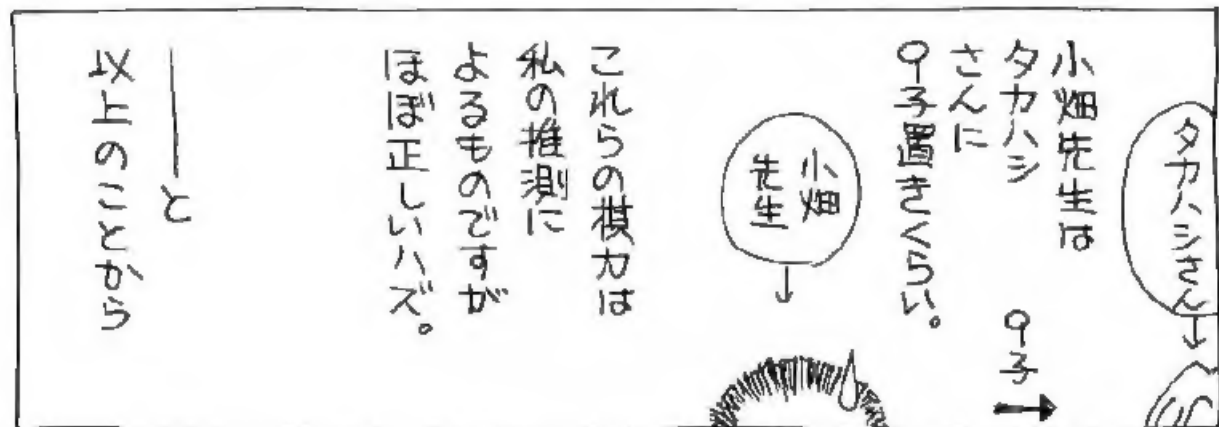 タカハシさん
小畑先生は
タカハシ
さんに
9子置きくらい。
9子
小畑
先生
これらの棋力は
私の推測に
よるものですが
ほぼ正しいハズ。
――と
以上のことから